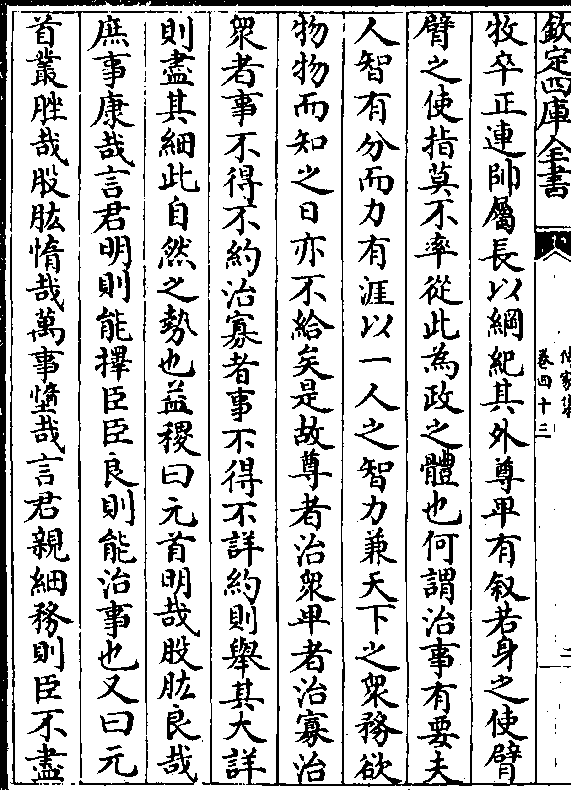 欽定四庫全書
傳家集
卷四十三
二
牧卒正連帥屬長以綱紀其外尊卑有叙若身之使臂
臂之使指莫不率從此為政之體也何謂治事有要夫
人智有分而力有涯以一人之智力兼天下之衆務欲
物物而知之日亦不給矣是故尊者治衆卑者治寡治
衆者事不得不約治寡者事不得不詳約則舉其大詳
則盡其細此自然之勢也益稷曰元首明哉股肱良哉
庶事康哉言君明則能擇臣臣良則能治事也又曰元
首叢脞哉股肱惰哉萬事墮哉言君親細務則臣不盡